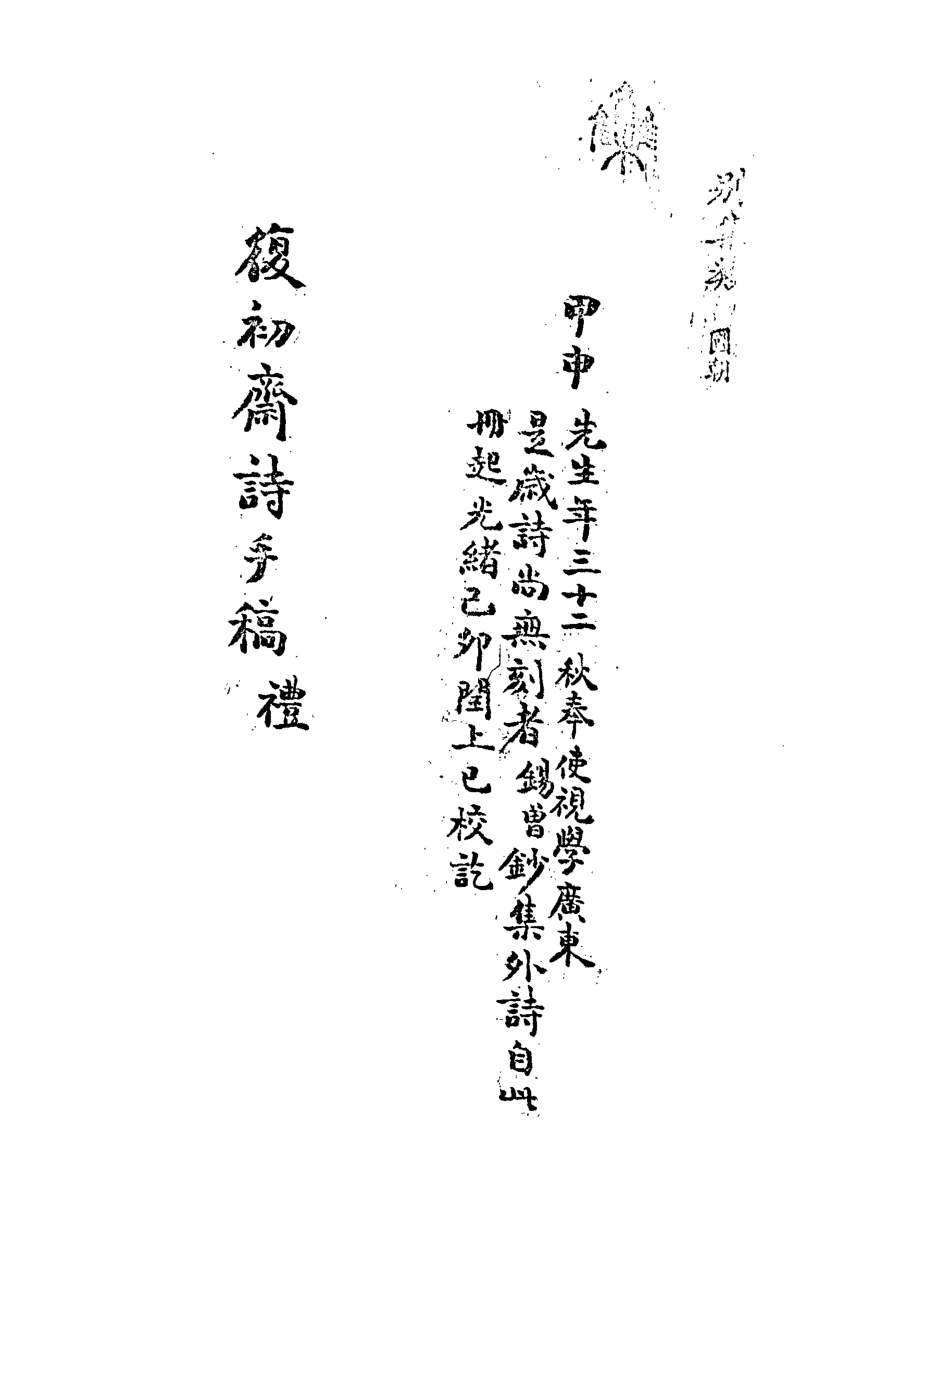 別集類 國朝
甲申 先生年三十二 秋奉使視學廣東
是歲詩尚無刻者 錫曾鈔集外詩自此
冊起光緒己卯閏上巳校訖
復初齋詩手稿 禮